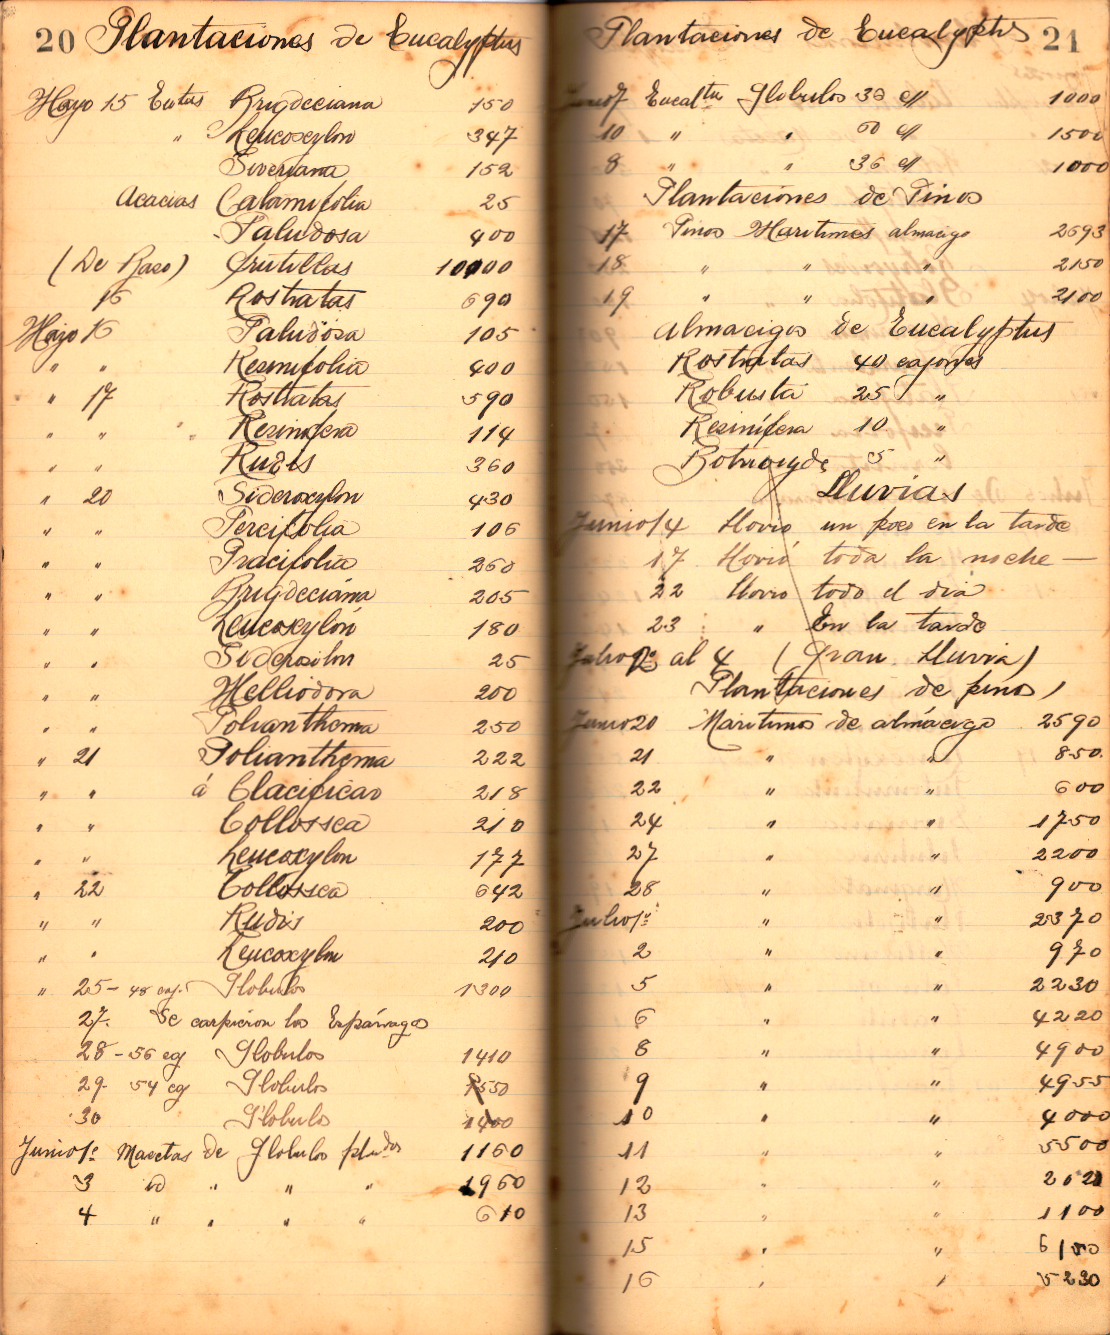 20 Plantaciones de Eucalyptus
Mayo 15 Eutus Brigdeciana 150
" Leucoxylon 347
Siveriana 152
Acacias Calamifolia 25
Paludosa 400
(De Raso) frutillas 10000
16 Rostratas 690
Mayo 16 Paludosa 105
" " Resinifolia 400
" 17 Rostratas 590
" " " Resinifera 114
" " Rudis 360
" 20 Sideroxylon 430
" " Percifolia 106
" " Gracifolia 260
" " Brigdeciána 205
" " Leucoxylón 180
" " Siderosilon 25
" " Helliodora 200
" " Polianthema 250
" 21 Polianthema 222
" " á Clacificar 218
" " Collossea 210
" " Leucoxylon 177
" 22 Collossea 642
" " Rudis 200
" " Leucoxylon 210
" 25 - 48 caj. Globulos 1300
27. Se carpieron los Espárragos
28 - 56 cg Globulos 1410
29. 54 cg Globulos 1550
30 Globulo 1400
Junio 1º Macetas de Globulos pldos 1160
3 id " " " 1960
4 " " " " 610
Plantaciones de Eucalyptus 21
Junio 7 Eucaltus Globulos 36 c/ 1000
10 " " 60 c/ 1500
8 " " 36 c/ 1000
Plantaciones de Pinos
17 Pinos Maritimos almacigo 2693
18 " " " 2150
19 " " " " 2100
Almacigos de Eucalyptus
Rostratas 40 cajones
Robusta 25 "
Resinífera 10 "
Botrioyde 5 "
Lluvias
Junio 14 Llovió un poco en la tarde
17 Llovió toda la noche —
22 Llovió todo el dia
23 " En la tarde
Julio 2º al 4 (Gran Lluvia)
Plantaciones de pinos
Junio 20 Maritimos de almácigo 2590
21 " " 850.
22 " " 600
24 " " 1750
27 " " 2200
28 " " 900
Julio 1º " " 2370
2 " " 970
5 " " 2230
6 " " 4220
8 " " 4900
9 " " 4955
10 " " 4000
11 " " 5500
12 " "
13 " " 1100
15 " " 6100
16 " " 5230